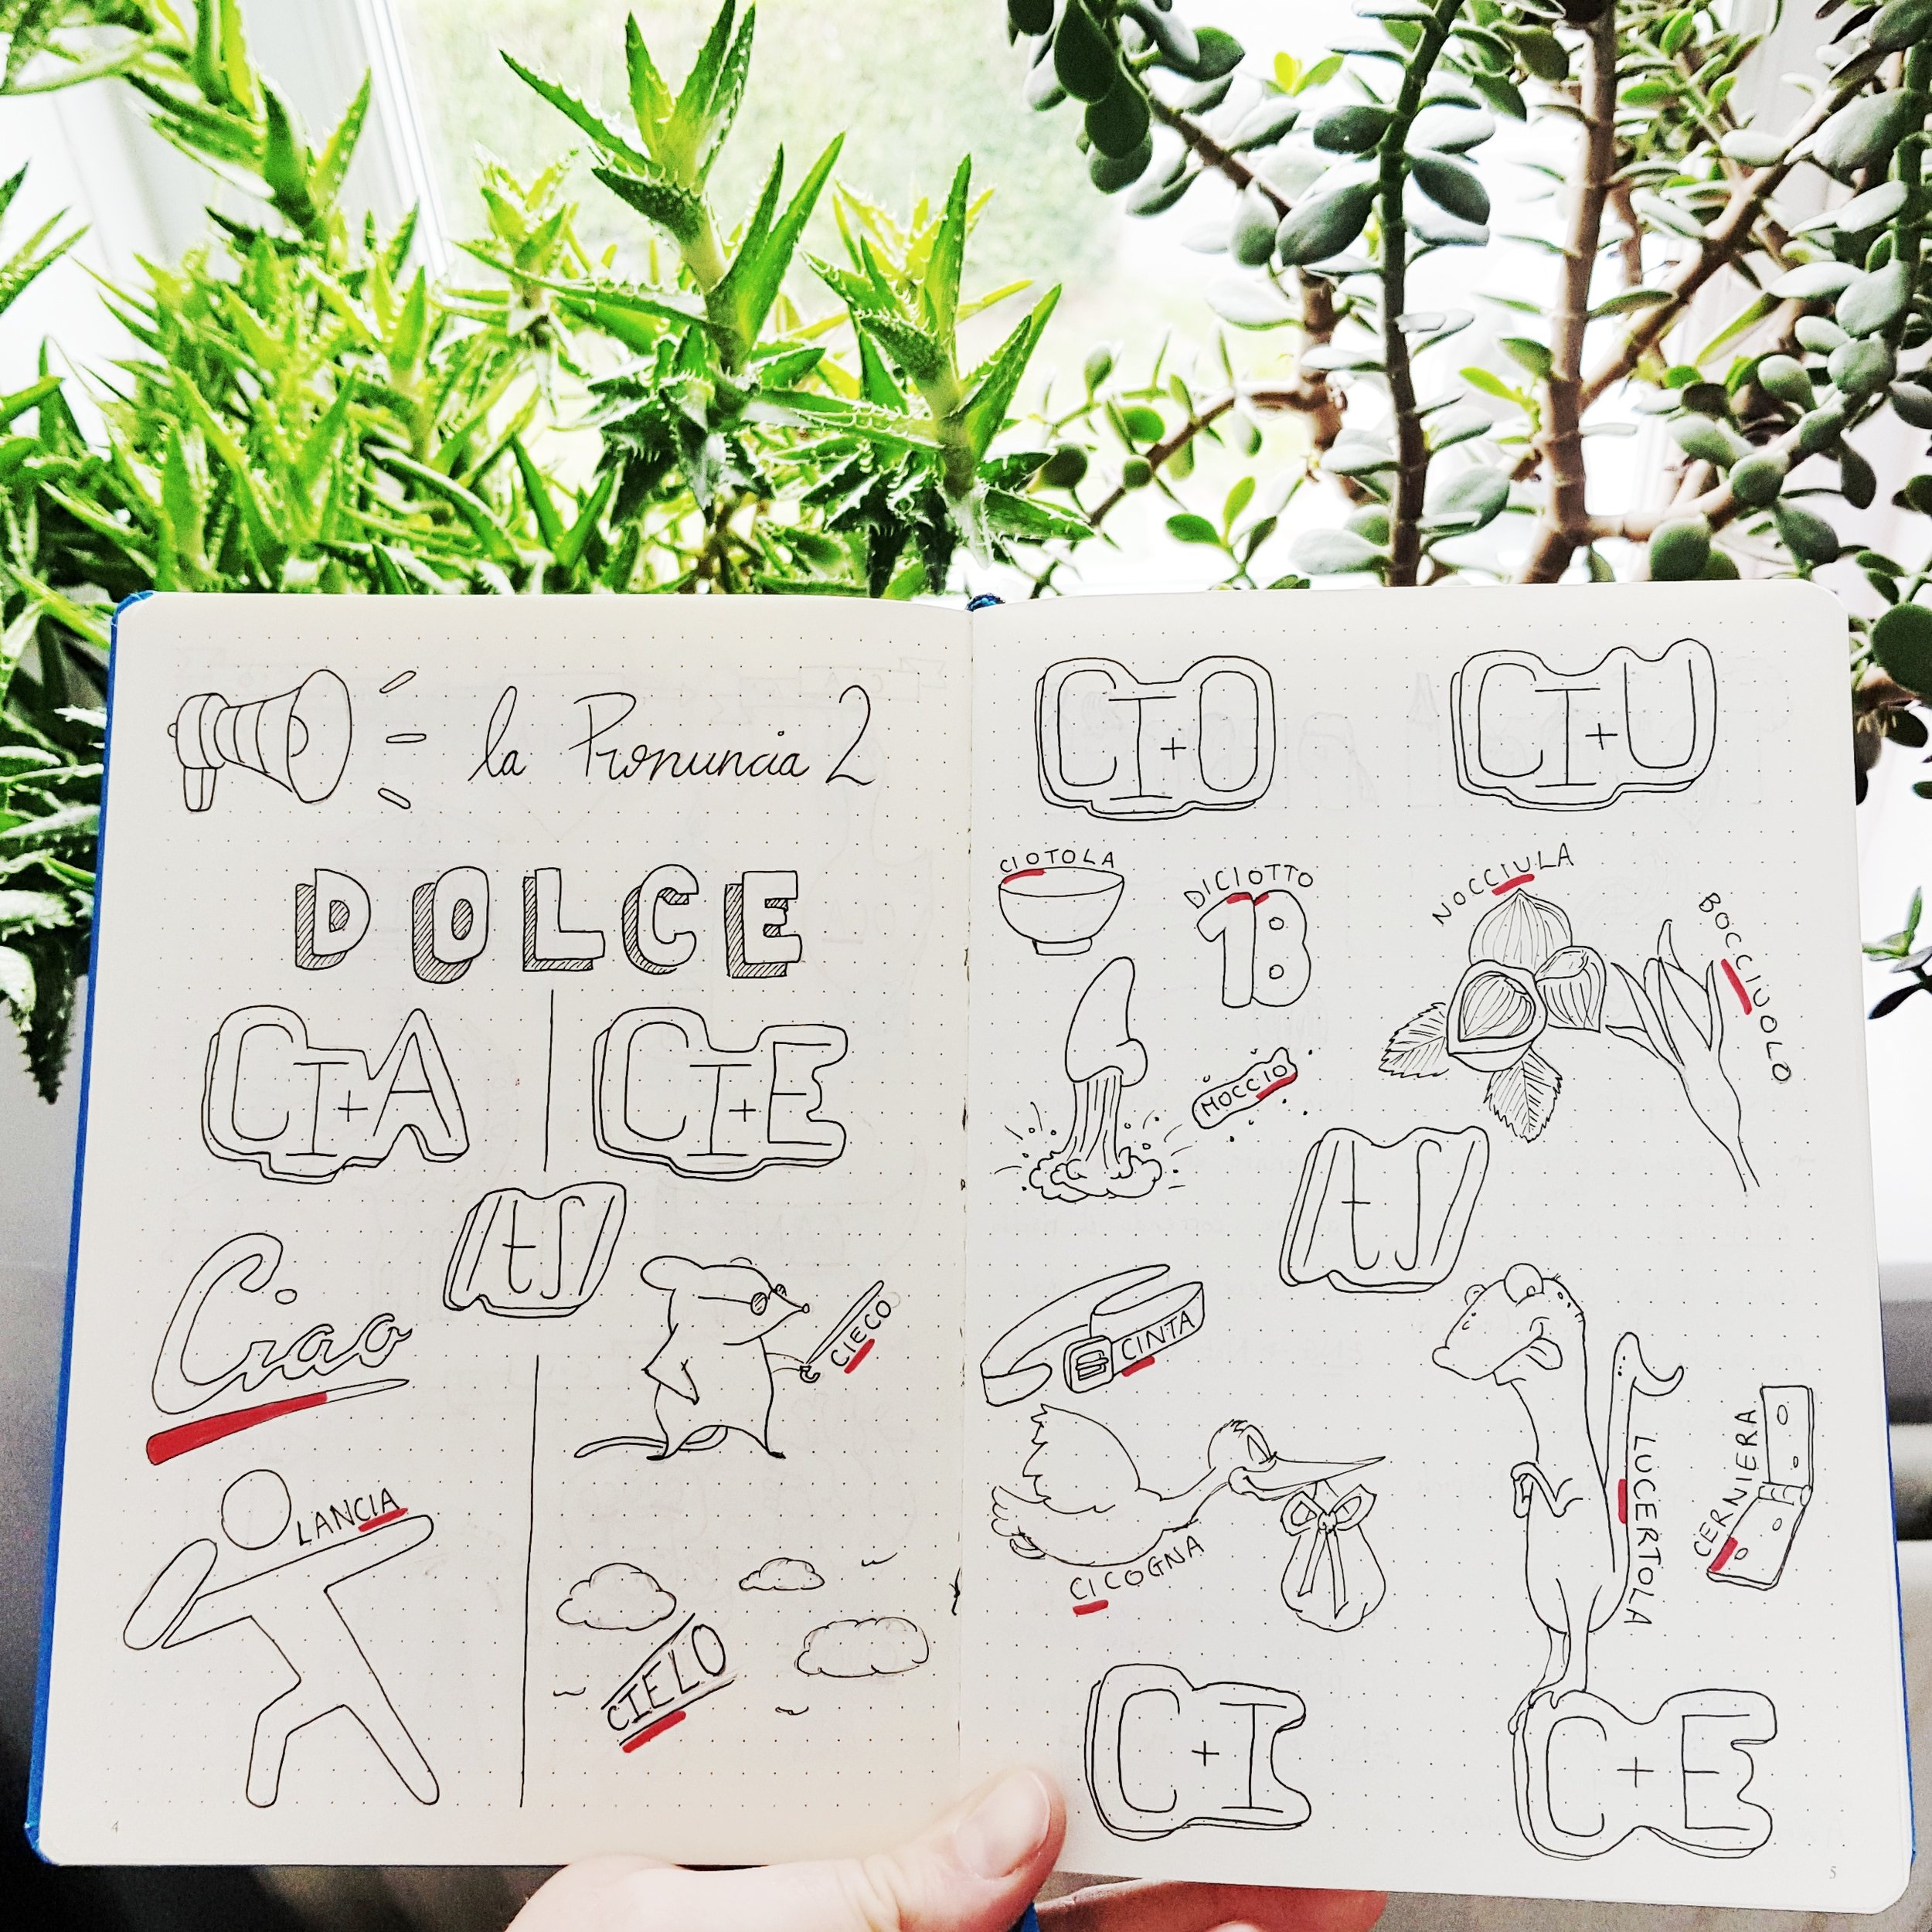 la Pronuncia 2
DOLCE
CI+A
CI+E
/tʃ/
Ciao
CIECO
LANCIA
CIELO
4
CI+O
CI+U
CIOTOLA
DICIOTTO
NOCCIULA
BOCCIUOLO
MOCCIO
/tʃ/
CINTA
CICOGNA
LUCERTOLA
CERNIERA
C+I
C+E
5